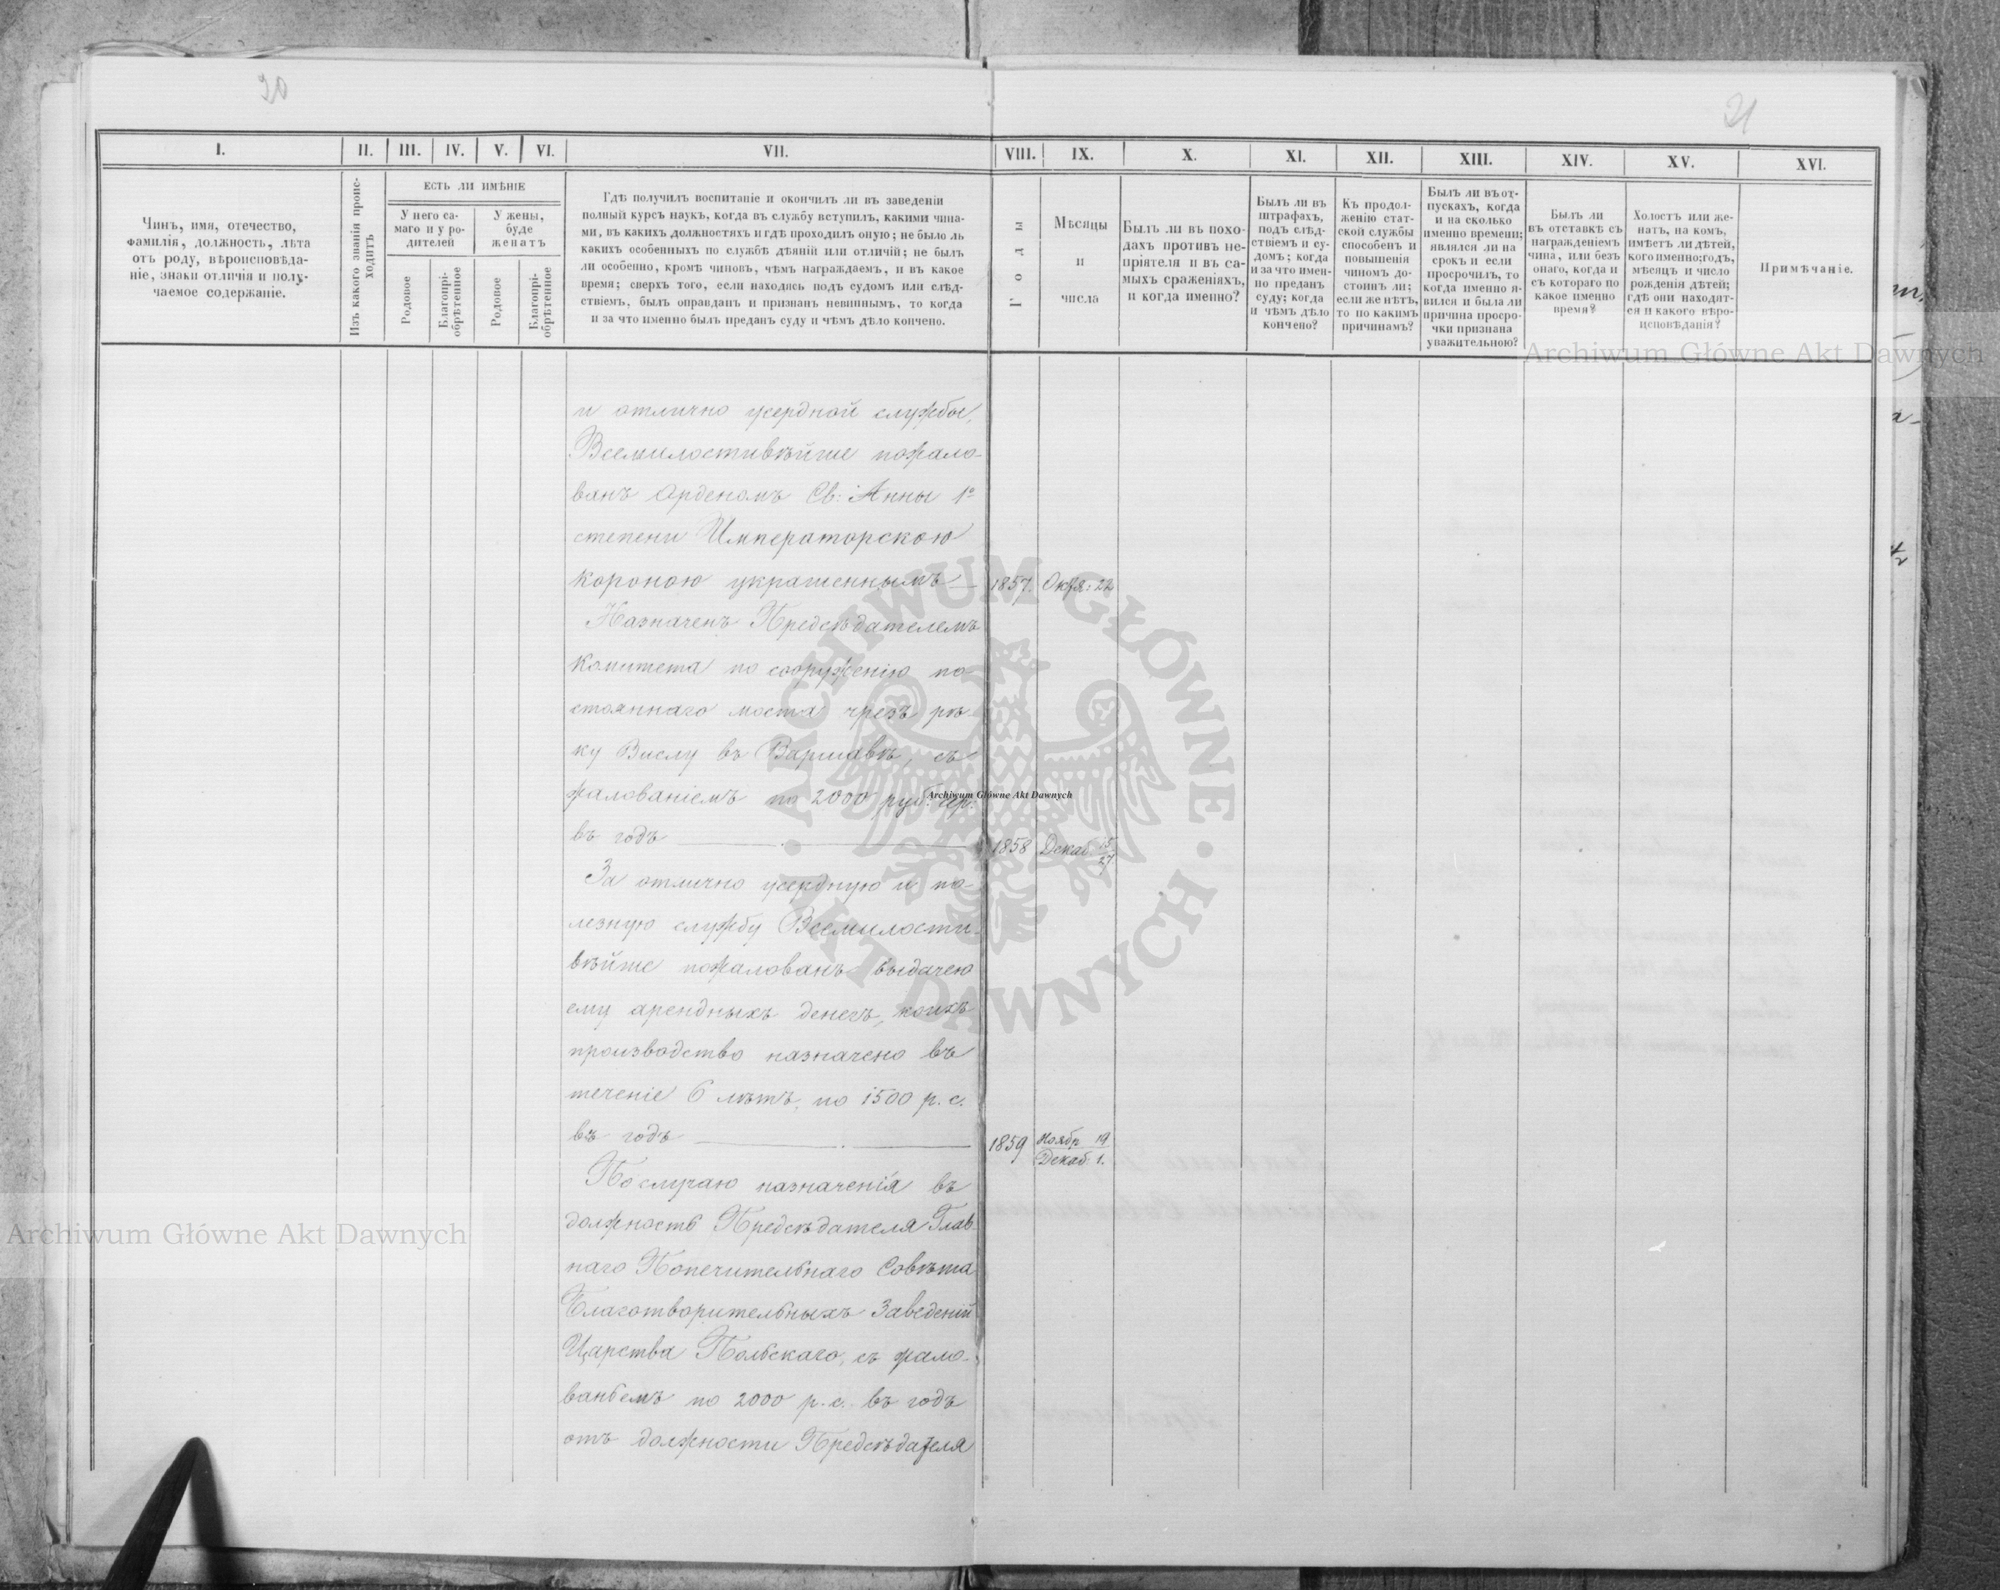 20
21
I.
II.
III.
IV.
V.
VI.
VII.
VIII.
IX.
X.
XI.
XII.
XIII.
XIV.
XV.
XVI.
Чинъ, имя, отечество,
фамилія, должность, лѣта
отъ роду, вѣроисповѣда-
ніе, знаки отличія и полу-
чаемое содержаніе.
Изъ какого званія проис-
ходитъ
ЕСТЬ ЛИ ИМѢНІЕ
У него са-
маго и у ро-
дителей
У жены,
буде
женатъ
Родовое
Благопрі-
обрѣтенное
Родовое
Благопрі-
обрѣтенное
Гдѣ получилъ воспитаніе и окончилъ ли въ заведеніи
полный курсъ наукъ, когда въ службу вступилъ, какими чина-
ми, въ какихъ должностяхъ и гдѣ проходилъ оную; не было ль
какихъ особенныхъ по службѣ дѣяній или отличій; не былъ
ли особенно, кромѣ чиновъ, чѣмъ награждаемъ, и въ какое
время; сверхъ того, если находясь подъ судомъ или слѣд-
ствіемъ, былъ оправданъ и признанъ невиннымъ, то когда
и за что именно былъ преданъ суду и чѣмъ дѣло кончено.
Годы
Мѣсяцы
и
числа
Былъ ли въ похо-
дахъ противъ не-
пріятеля и въ са-
мыхъ сраженіяхъ,
и когда именно?
Былъ ли въ
штрафахъ,
подъ слѣд-
ствіемъ и су-
домъ; когда
и за что имен-
но преданъ
суду; когда
и чѣмъ дѣло
кончено?
Къ продол-
женію стат-
ской службы
способенъ и
повышенія
чиномъ до-
стоинъ ли;
если же нѣтъ,
то по какимъ
причинамъ?
Былъ ли въ от-
пускахъ, когда
и на сколько
именно времени;
являлся ли на
срокъ и если
просрочилъ, то
когда именно я-
вился и была ли
причина просро-
чки признана
уважительною?
Былъ ли
въ отставкѣ съ
награжденіемъ
чина, или безъ
онаго, когда и
съ котораго по
какое именно
время?
Холостъ или же-
натъ, на комъ,
имѣетъ ли дѣтей,
кого именно; годъ,
мѣсяцъ и число
рожденія дѣтей;
гдѣ они находят-
ся и какого вѣро-
исповѣданія?
Примѣчаніе.
и отлично усердной службы,
Всемилостивѣйше пожало-
ванъ Орденомъ Св: Анны 1й
степени Императорскою
Короною украшеннымъ — 1857. Октя: 22
Назначенъ Предсѣдателемъ
Комитета по сооруженію по-
стояннаго моста чрезъ рѣ-
ку Вислу въ Варшавѣ, съ
жалованіемъ по 2000 руб: ср:
въ годъ — 1858 Декаб: 15/27
За отлично усердную и по-
лезную службу Всемилости-
вѣйше пожалованъ выдачею
ему арендныхъ денегъ, коихъ
производство назначено въ
теченіе 6 лѣтъ, по 1500 р. с.
въ годъ — 1859 Ноябр 19/Декаб: 1.
По случаю назначенія въ
должность Предсѣдателя Глав-
наго Попечительнаго Совѣта
Благотворительныхъ Заведеній
Царства Польскаго, съ жало-
ваньемъ по 2000 р. с. въ годъ
отъ должности Предсѣдателя
Archiwum Główne Akt Dawnych
Archiwum Główne Akt Dawnych
Archiwum Główne Akt Dawnych
ARCHIWUM GŁÓWNE · AKT DAWNYCH ·